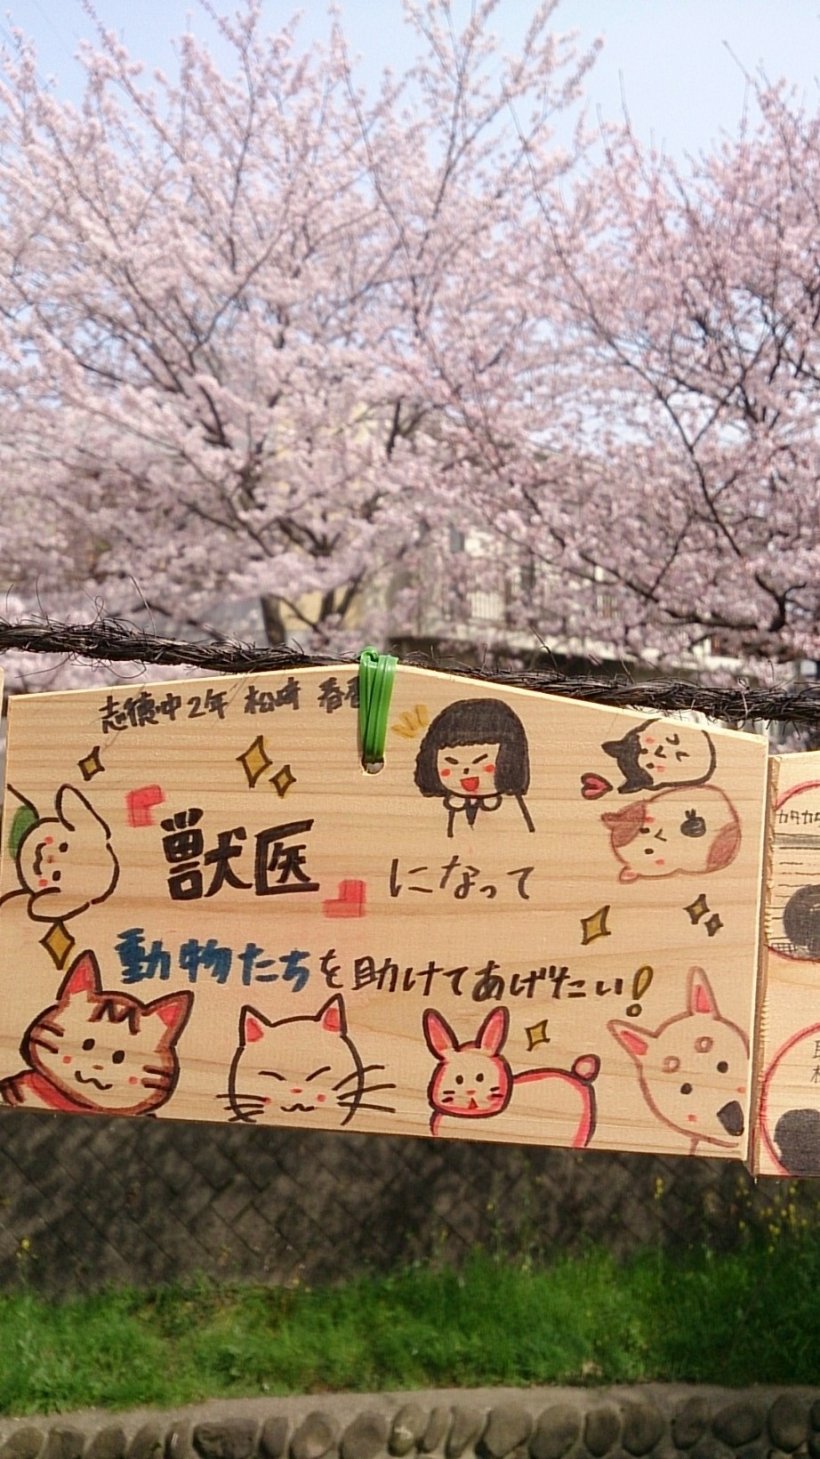 志徳中2年 松崎 春香
「獣医」になって
動物たちを助けてあげたい!
カタカタ